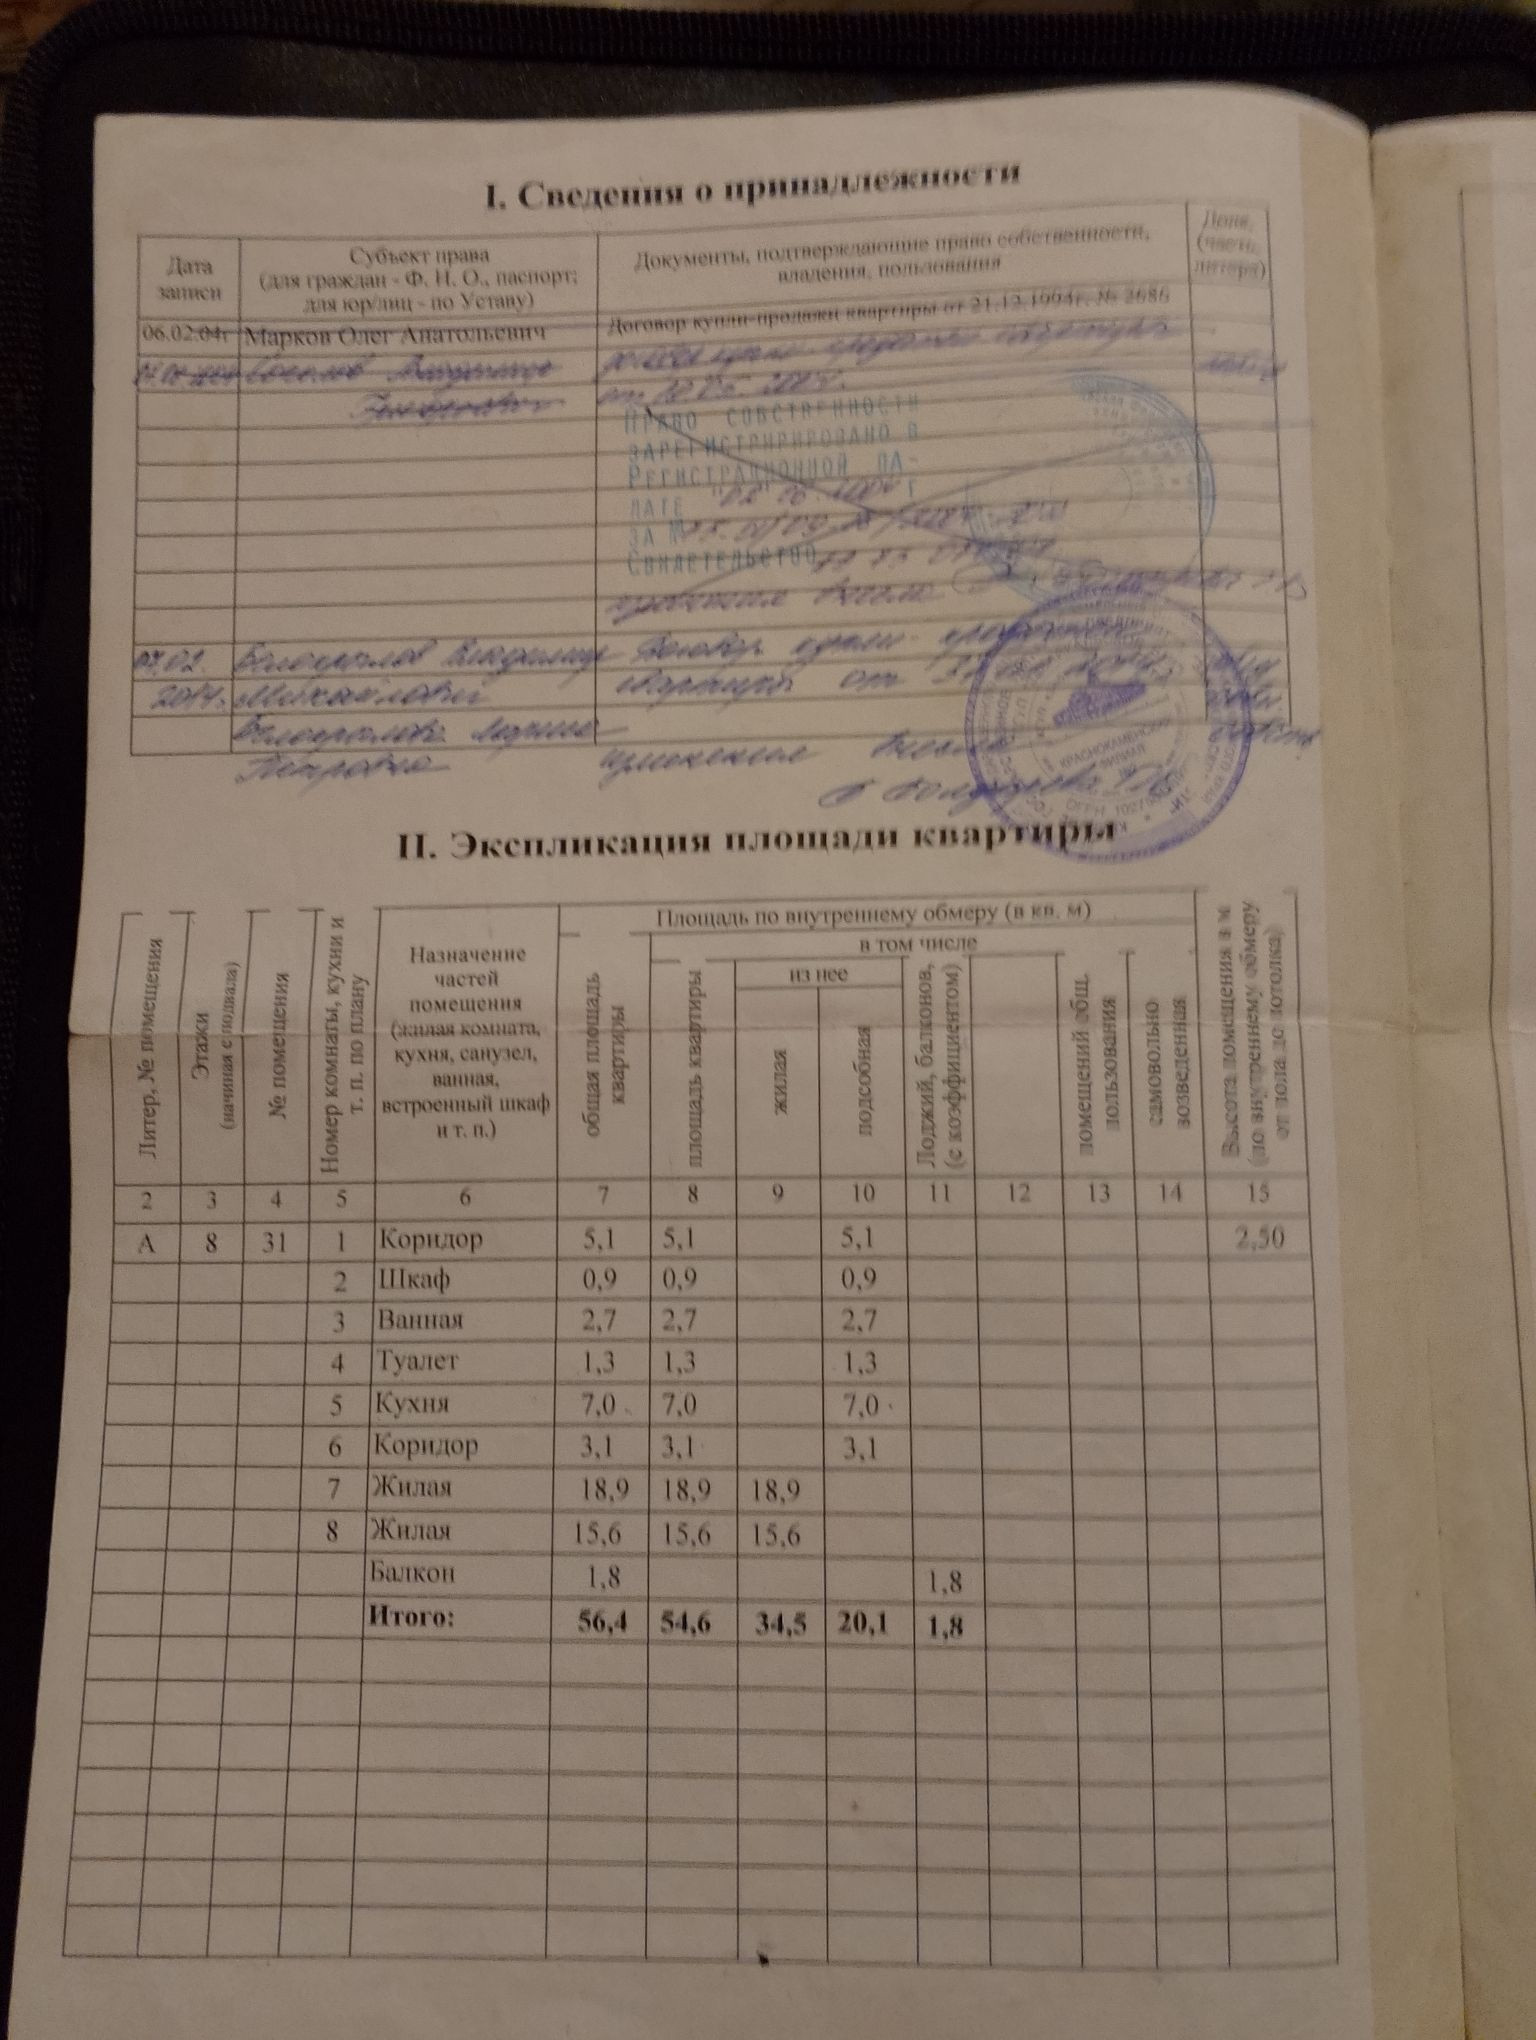 I. Сведения о принадлежности
Дата записи
Субъект права
(для граждан - Ф. И. О., паспорт;
для юр/лиц - по Уставу)
Документы, подтверждающие право собственности,
владения, пользования
Доля,
(часть,
литера)
06.02.04г Марков Олег Анатольевич Договор купли-продажи квартиры от 21.12.1994г. № 2686
Соколов Владимир
купли продажи квартиры
от 2004г.
ПРАВО СОБСТВЕННОСТИ
ЗАРЕГИСТРИРОВАНО В
РЕГИСТРАЦИОННОЙ ПА-
ЛАТЕ
ЗА №
СВИДЕТЕЛЬСТВО
изменения внесла
Владимир Договор купли-продажи
2014г. Михайлович квартиры от
Марина изменения внесла
Петровна
КРАСНОКАМЕНСКИЙ
ФИЛИАЛ
ОГРН
II. Экспликация площади квартиры
Литер, № помещения
Этажи
(начиная с подвала)
№ помещения
Номер комнаты, кухни и
т. п. по плану
Назначение
частей
помещения
(жилая комната,
кухня, санузел,
ванная,
встроенный шкаф
и т. п.)
Площадь по внутреннему обмеру (в кв. м)
общая площадь
квартиры
в том числе
площадь квартиры
из нее
жилая
подсобная
Лоджий, балконов,
(с коэффициентом)
помещений общ.
пользования
самовольно
возведенная
Высота помещения в м
(по внутреннему обмеру
от пола до потолка)
2 3 4 5 6 7 8 9 10 11 12 13 14 15
А 8 31 1 Коридор 5,1 5,1 5,1 2,50
2 Шкаф 0,9 0,9 0,9
3 Ванная 2,7 2,7 2,7
4 Туалет 1,3 1,3 1,3
5 Кухня 7,0 7,0 7,0
6 Коридор 3,1 3,1 3,1
7 Жилая 18,9 18,9 18,9
8 Жилая 15,6 15,6 15,6
Балкон 1,8 1,8
Итого: 56,4 54,6 34,5 20,1 1,8